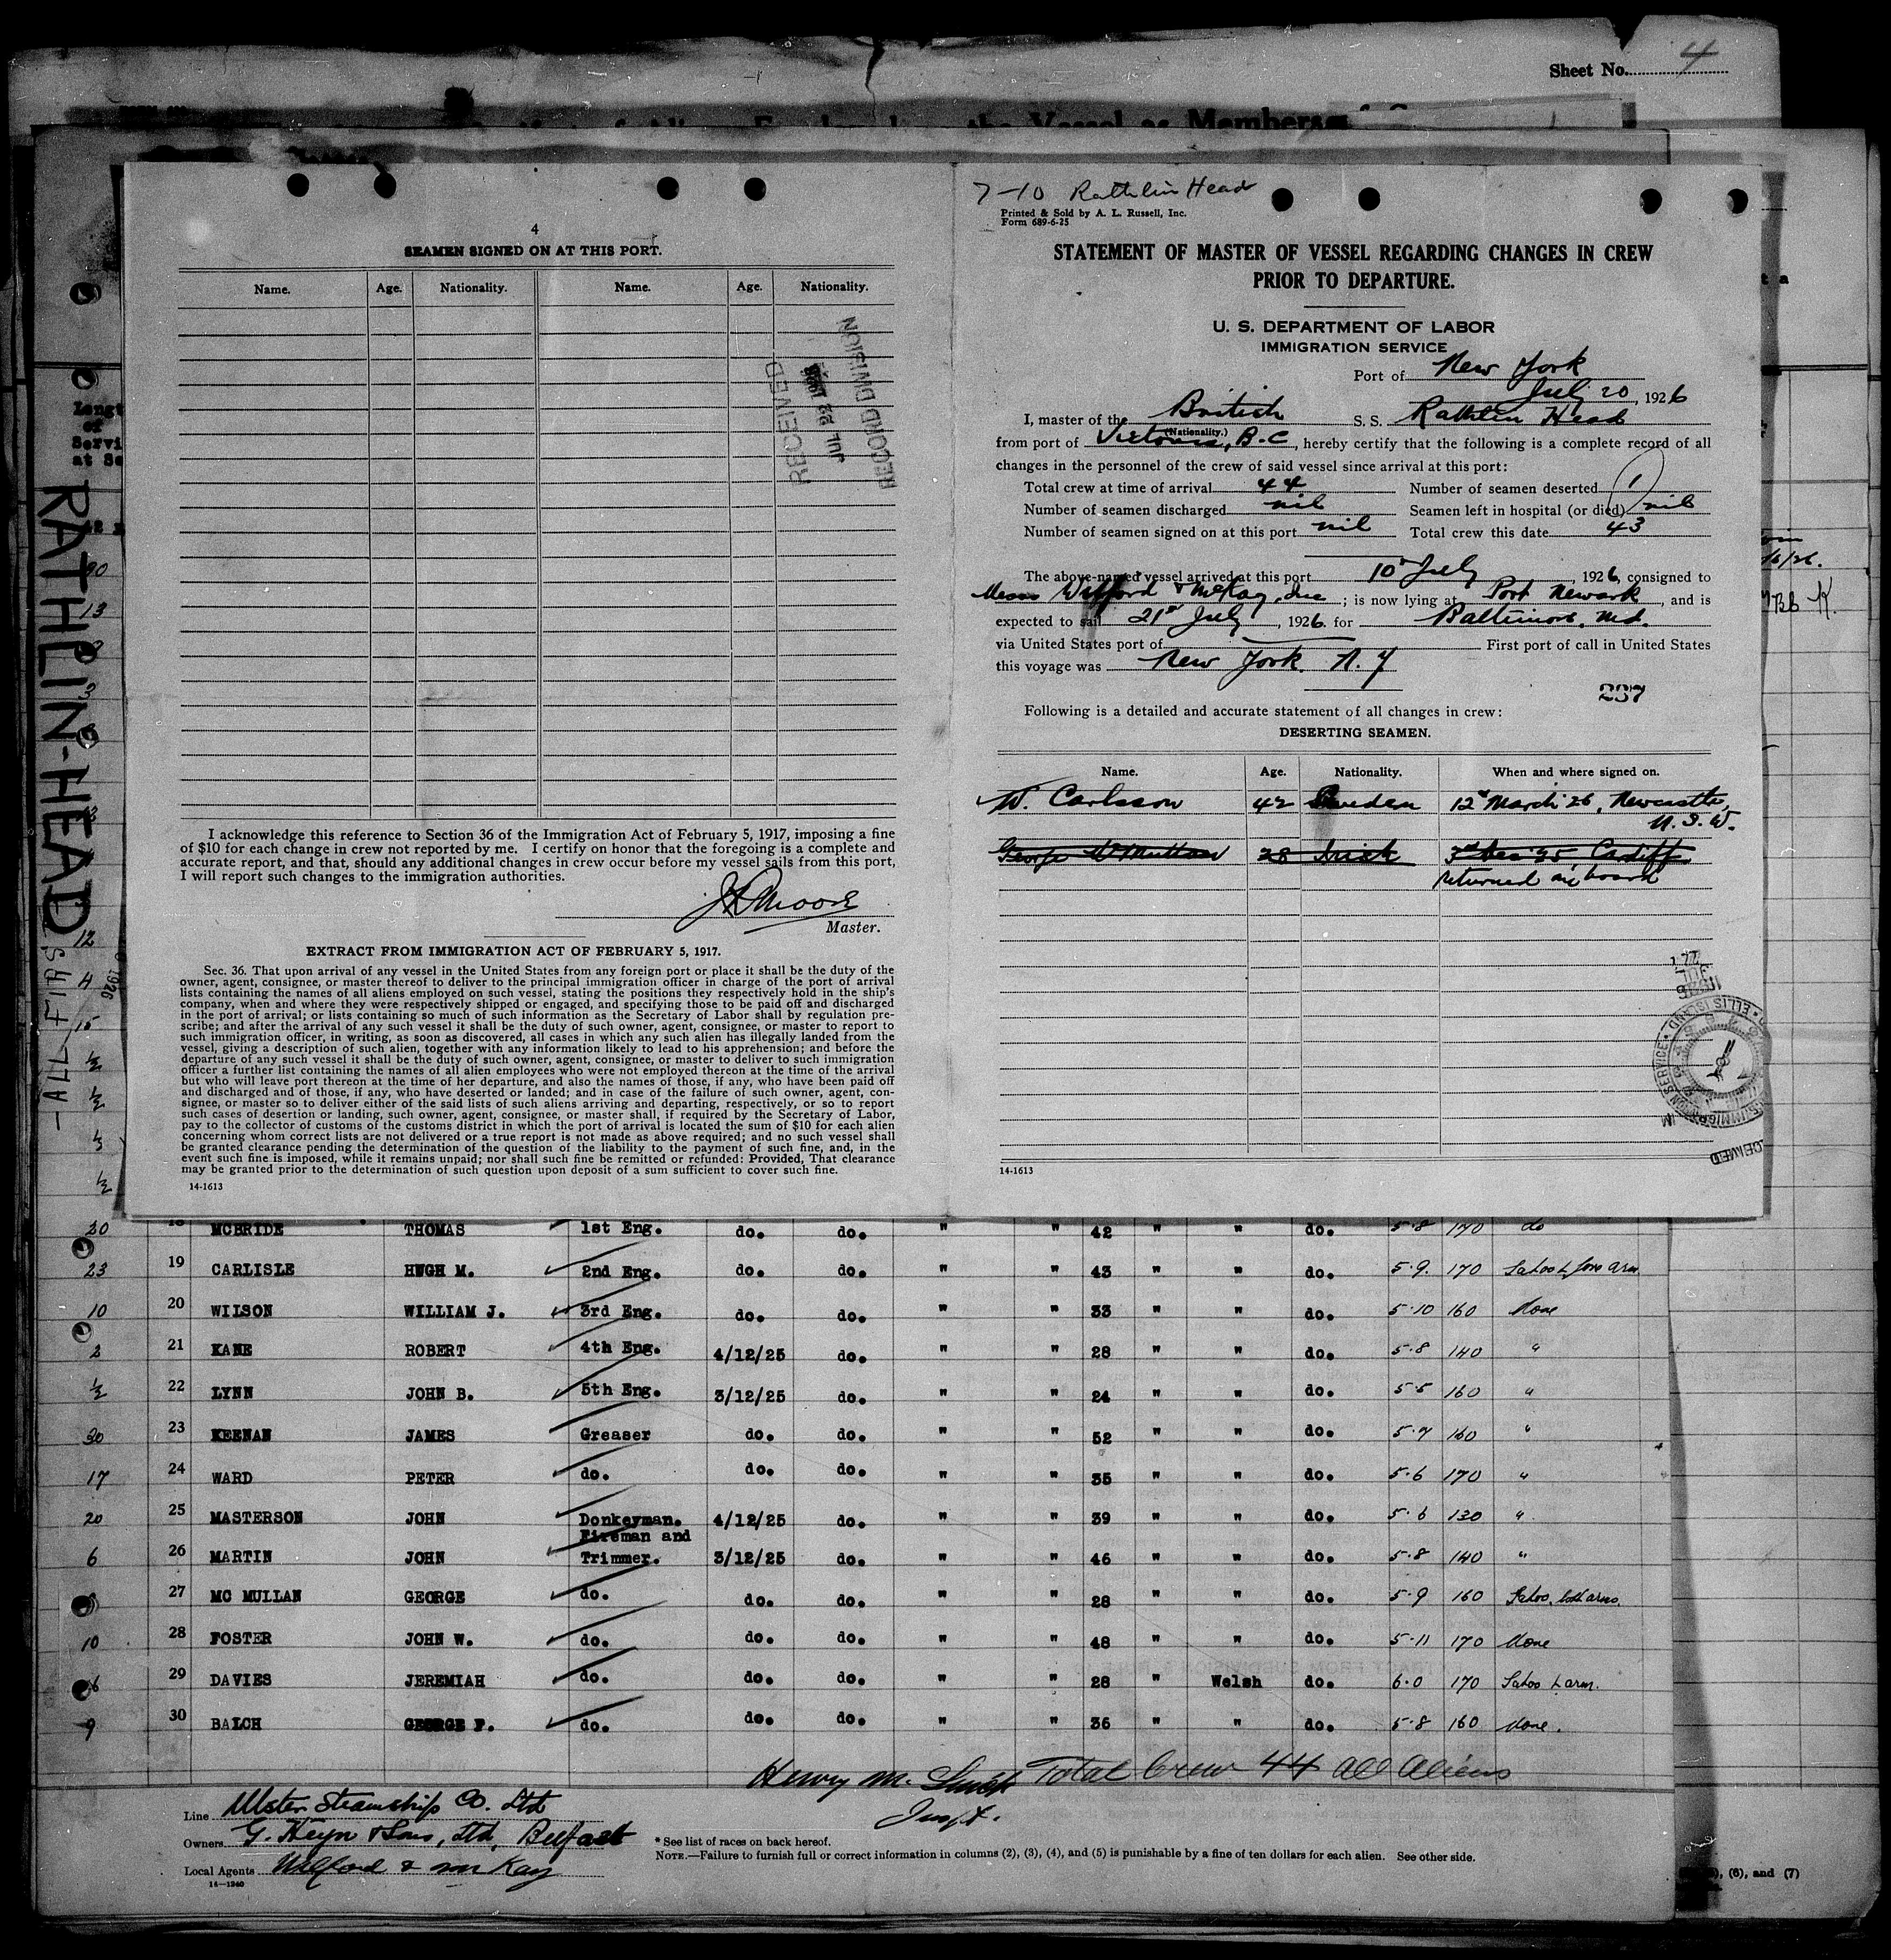 Sheet No. 4
4
SEAMEN SIGNED ON AT THIS PORT.
Name. Age. Nationality. Name. Age. Nationality.
RECEIVED
JUL 22 1926
RECORD DIVISION
I acknowledge this reference to Section 36 of the Immigration Act of February 5, 1917, imposing a fine
of $10 for each change in crew not reported by me. I certify on honor that the foregoing is a complete and
accurate report, and that, should any additional changes in crew occur before my vessel sails from this port,
I will report such changes to the immigration authorities.
Moore
Master.
EXTRACT FROM IMMIGRATION ACT OF FEBRUARY 5, 1917.
Sec. 36. That upon arrival of any vessel in the United States from any foreign port or place it shall be the duty of the
owner, agent, consignee, or master thereof to deliver to the principal immigration officer in charge of the port of arrival
lists containing the names of all aliens employed on such vessel, stating the positions they respectively hold in the ship's
company, when and where they were respectively shipped or engaged, and specifying those to be paid off and discharged
in the port of arrival; or lists containing so much of such information as the Secretary of Labor shall by regulation pre-
scribe; and after the arrival of any such vessel it shall be the duty of such owner, agent, consignee, or master to report to
such immigration officer, in writing, as soon as discovered, all cases in which any such alien has illegally landed from the
vessel, giving a description of such alien, together with any information likely to lead to his apprehension; and before the
departure of any such vessel it shall be the duty of such owner, agent, consignee, or master to deliver to such immigration
officer a further list containing the names of all alien employees who were not employed thereon at the time of the arrival
but who will leave port thereon at the time of her departure, and also the names of those, if any, who have been paid off
and discharged and of those, if any, who have deserted or landed; and in case of the failure of such owner, agent, con-
signee, or master so to deliver either of the said lists of such aliens arriving and departing, respectively, or so to report
such cases of desertion or landing, such owner, agent, consignee, or master shall, if required by the Secretary of Labor,
pay to the collector of customs of the customs district in which the port of arrival is located the sum of $10 for each alien
concerning whom correct lists are not delivered or a true report is not made as above required; and no such vessel shall
be granted clearance pending the determination of the question of the liability to the payment of such fine, and, in the
event such fine is imposed, while it remains unpaid; nor shall such fine be remitted or refunded: Provided, That clearance
may be granted prior to the determination of such question upon deposit of a sum sufficient to cover such fine.
14-1613
7-10 Rathlin Head
Printed & Sold by A. L. Russell, Inc.
Form 689-6-25
STATEMENT OF MASTER OF VESSEL REGARDING CHANGES IN CREW
PRIOR TO DEPARTURE.
U. S. DEPARTMENT OF LABOR
IMMIGRATION SERVICE
Port of New York
July 20, 1926
I, master of the British S. S. Rathlin Head
(Nationality.)
from port of Victoria, B.C, hereby certify that the following is a complete record of all
changes in the personnel of the crew of said vessel since arrival at this port:
Total crew at time of arrival 44 Number of seamen deserted 1
Number of seamen discharged nil Seamen left in hospital (or died) nil
Number of seamen signed on at this port nil Total crew this date 43
The above-named vessel arrived at this port 10th July, 1926, consigned to
Messrs Wilford & McKay, Inc; is now lying at Port Newark, and is
expected to sail 21st July, 1926. for Baltimore, Md.
via United States port of First port of call in United States
this voyage was New York. N. Y
237
Following is a detailed and accurate statement of all changes in crew:
DESERTING SEAMEN.
Name. Age. Nationality. When and where signed on.
W. Carlsson 42 Sweden 12th March 26, Newcastle,
N.S.W.
George McMullan 28 Irish 3rd Dec 25, Cardiff
returned on board
ELLIS ISLAND
RECEIVED
14-1613
RATHLIN-HEAD
18 MCBRIDE THOMAS 1st Eng. do. do. " " 42 " " do. 5-8 170 do
23 19 CARLISLE HUGH M. 2nd Eng. do. do. " " 43 " " do. 5-9. 170 Tatoo L fore arm.
10 20 WILSON WILLIAM J. 3rd Eng. do. do. " " 33 " " do. 5-10 160 None
2 21 KANE ROBERT 4th Eng. 4/12/25 do. " " 28 " " do. 5-8 140 "
½ 22 LYNN JOHN B. 5th Eng. 3/12/25 do. " " 24 " " do. 5-5 160 "
30 23 KEENAN JAMES Greaser do. do. " " 52 " " do. 5-7 160 "
17 24 WARD PETER do. do. do. " " 35 " " do. 5-6 170 "
20 25 MASTERSON JOHN Donkeyman. 4/12/25 do. " " 39 " " do. 5-6 130 "
Fireman and
6 26 MARTIN JOHN Trimmer. 3/12/25 do. " " 46 " " do. 5-8 140 "
27 MC MULLAN GEORGE do. do. do. " " 28 " " do. 5-9 160 Tatoo, both arms.
10 28 FOSTER JOHN W. do. do. do. " " 48 " " do. 5-11 170 None
6 29 DAVIES JEREMIAH do. do. do. " " 28 " Welsh do. 6-0 170 Tatoo L arm.
9 30 BALCH GEORGE F. do. do. do. " " 36 " " do. 5-8 160 None.
Henry M. Smith Total Crew 44 All Aliens
Inspt.
Line Ulster Steamship Co. Ltd
Owners G. Heyn & Sons, Ltd, Belfast
Local Agents Wilford & McKay
14-1240
* See list of races on back hereof.
NOTE.—Failure to furnish full or correct information in columns (2), (3), (4), and (5) is punishable by a fine of ten dollars for each alien. See other side.
, (6), and (7)